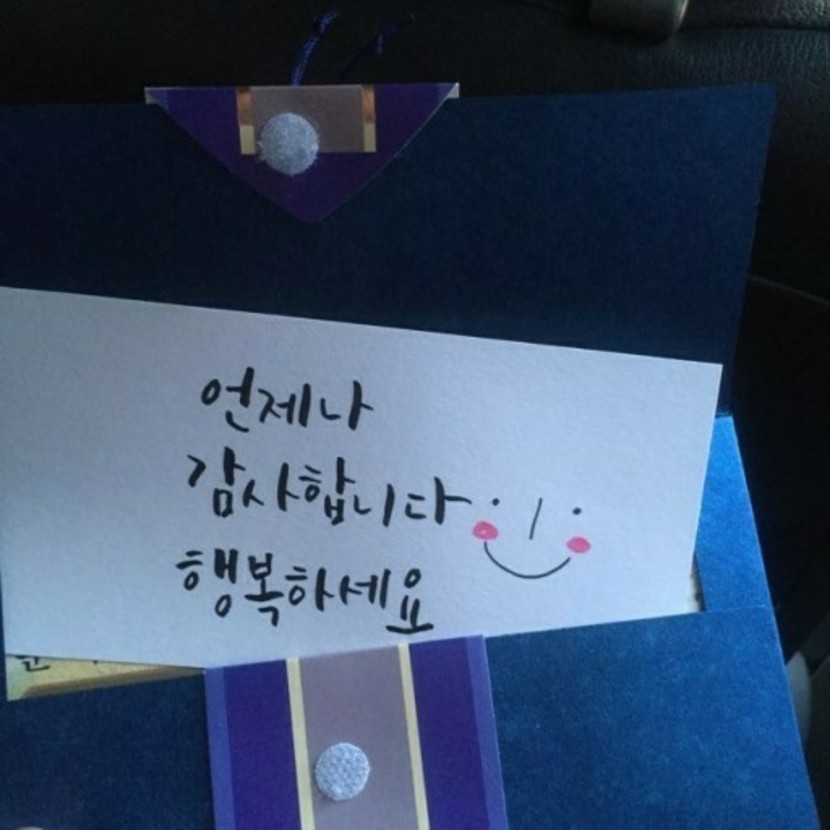 언제나
감사합니다
행복하세요